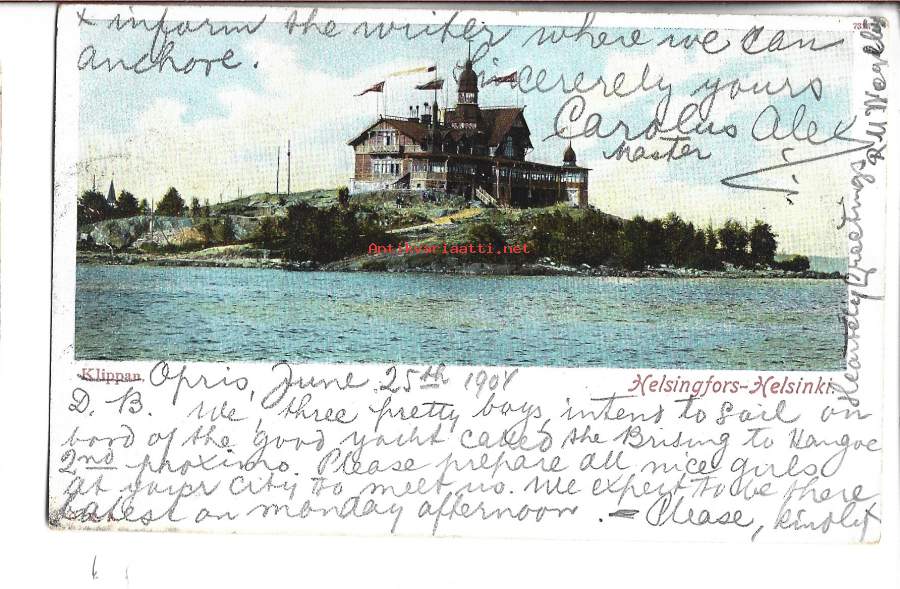 + inform the writer where we can
anchore.
Sincererely yours
Carolus Alex
Master
Heartely Greetings
Antikvariaatti.net
Klippan.
Helsingfors-Helsinki.
Opris, June 25th 1904
D. B. We, three pretty boys, intens to sail on
bord of the good yacht called the Brising to Hangoe
2nd proximo. Please prepare all nice girls
at your city to meet us. We expect to be there
latest on monday afternoon. – Please, kindly